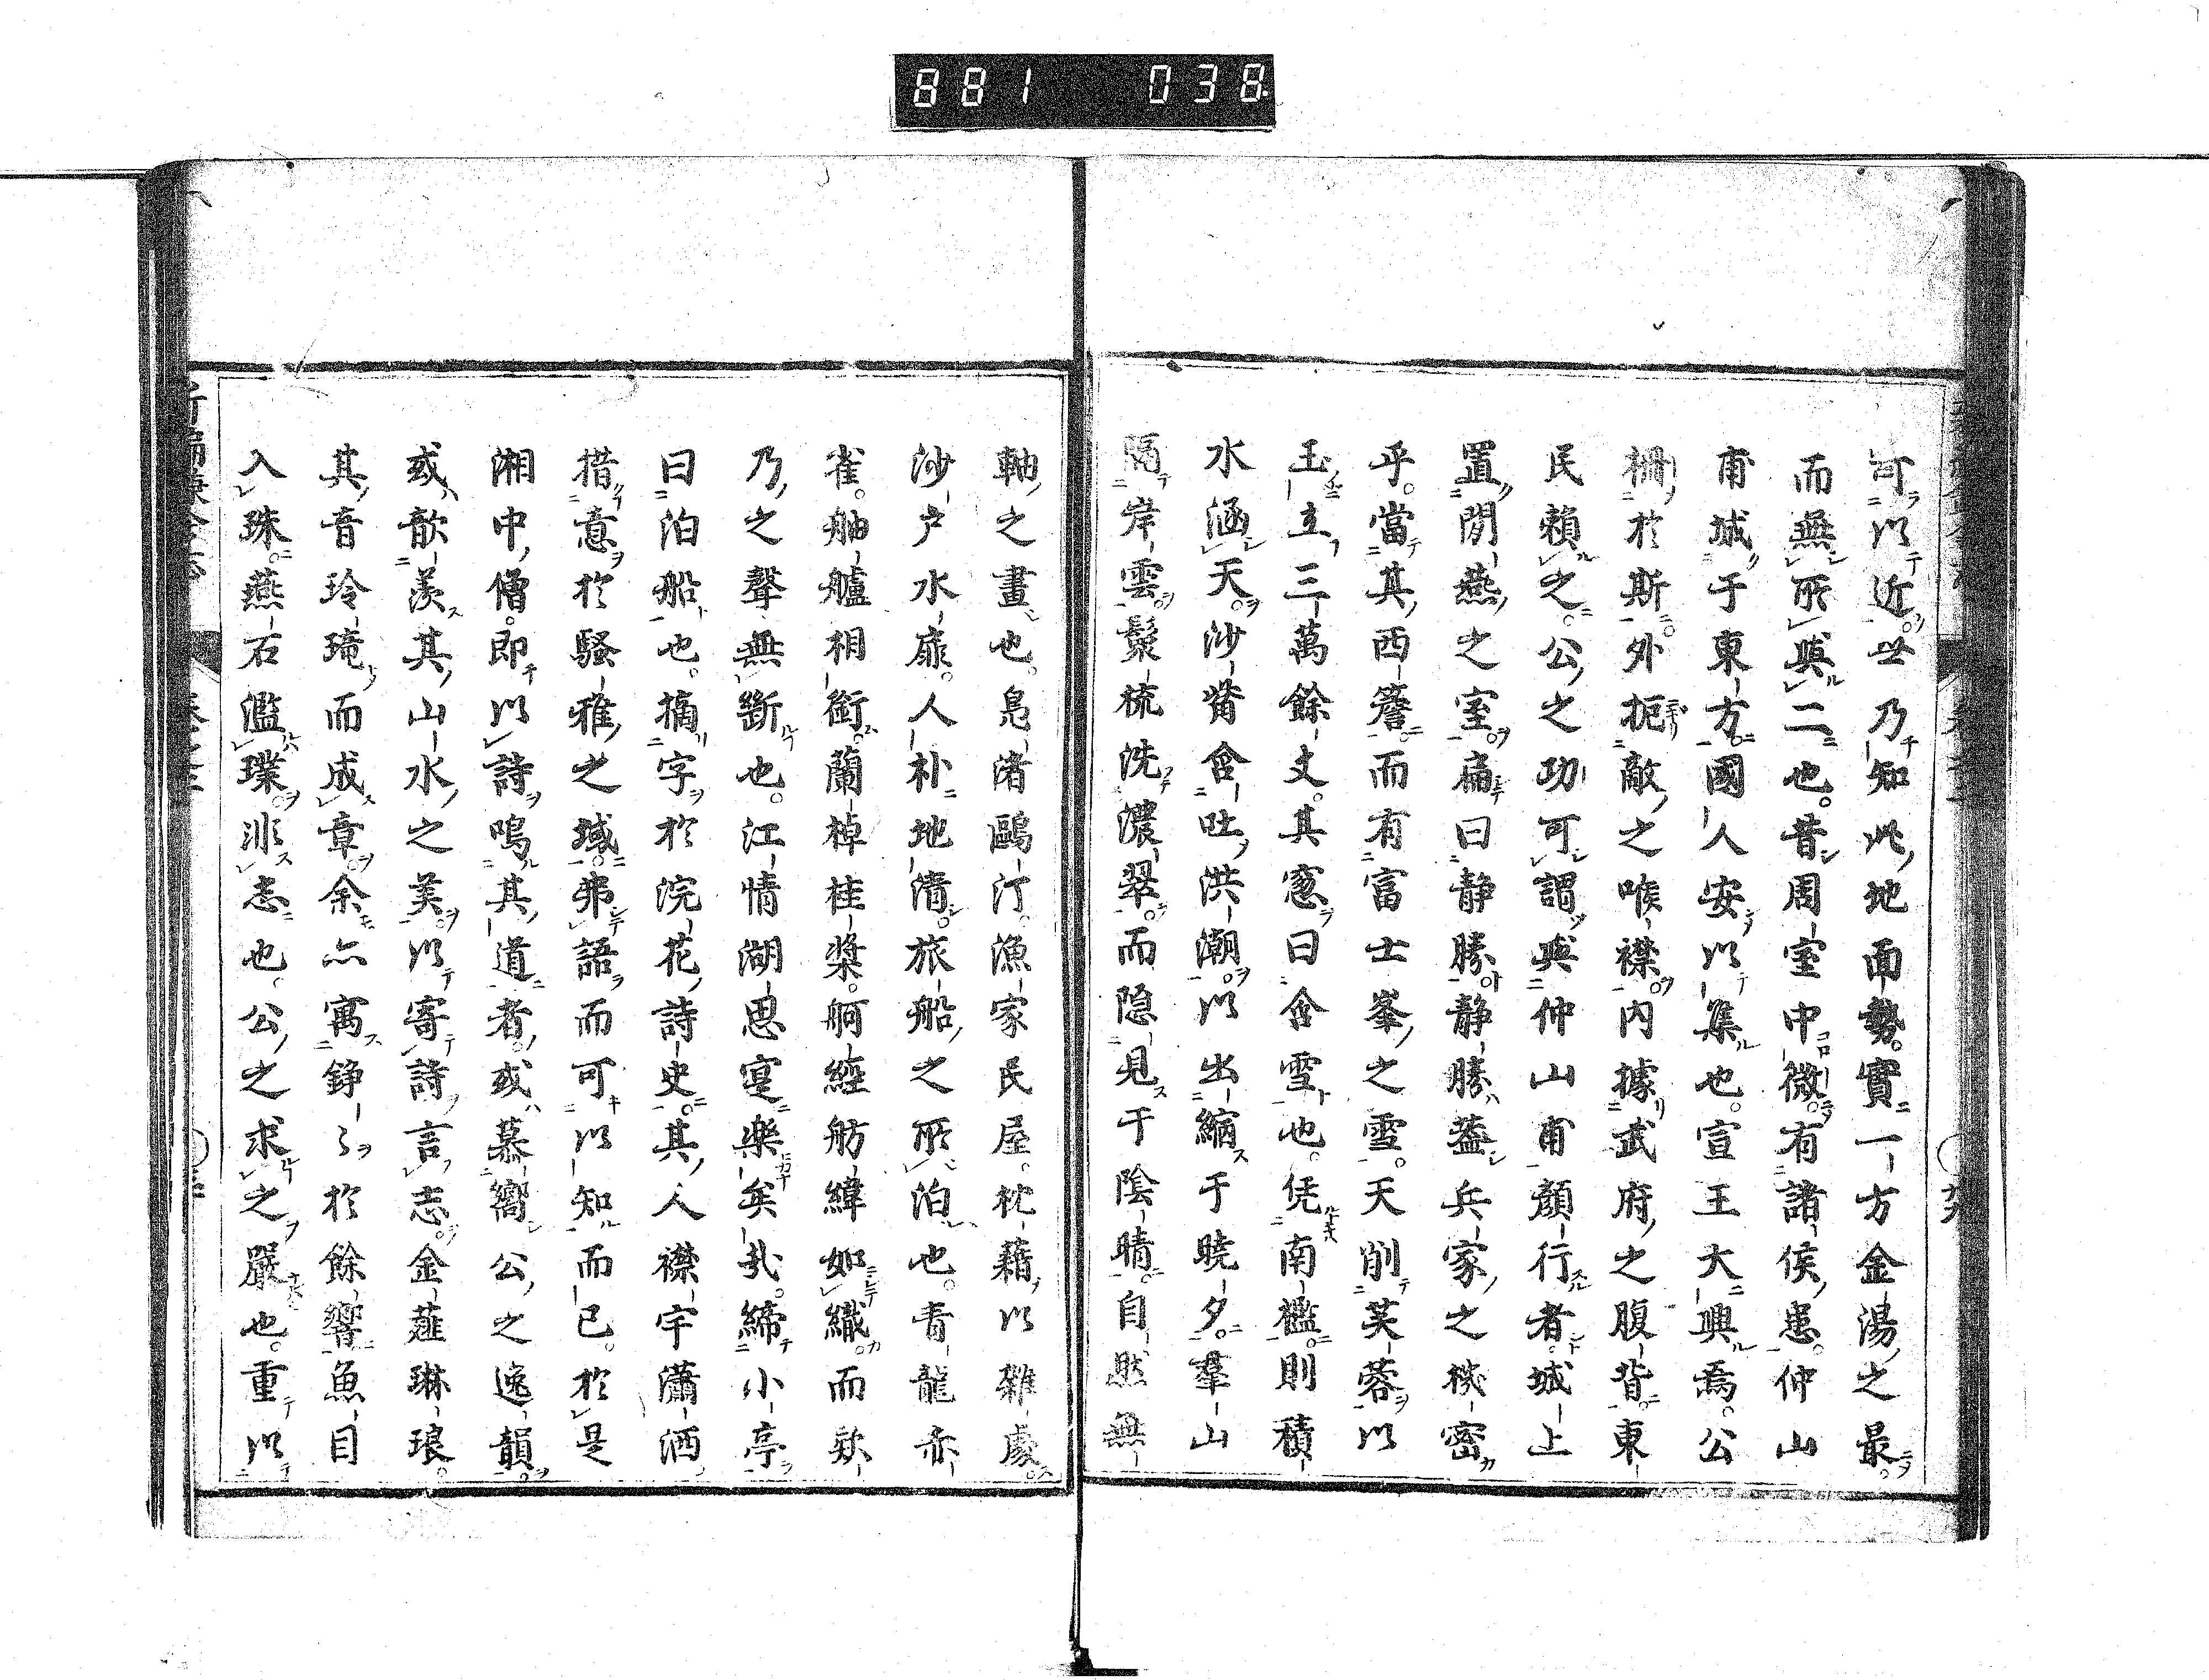 881 038
可以近世乃知此地面勢。實一方金湯之最。
而無所與二也。昔周室中微。有諸侯患。仲山
甫城于東方。國人安以集也。宣王大興焉。公
柵於斯。外扼敵之喉襟。內據武府之腹背。東
民賴之。公之功可謂與仲山甫顏行者。城上
置閒燕之室。扁曰靜勝。靜勝蓋兵家之機密
乎。當其西簷。而有富士峯之雪。天削芙蓉。以
玉立三萬餘丈。其窓曰含雪也。凭南檻。則積
水涵天。沙觜含吐洪潮。以出縮于曉夕。羣山
隔岸。雲鬟梳洗濃翠。而隱見于陰晴。自然無
軸之畫也。鳧渚鷗汀。漁家民屋。枕藉以雜處。
沙戶水扉。人朴地清。旅船之所泊也。青龍赤
雀。舳艫相銜。蘭棹桂槳。舸經舫緯如織。而欸
乃之聲無斷也。江情湖思寔樂矣哉。締小亭
曰泊船也。摘字於浣花詩史。其人襟宇瀟洒。
措意於騷雅之域。弗語而可以知而已。於是
湘中僧。即以詩鳴其道者。或慕嚮公之逸韻。
或歆羨其山水之美。以寄詩言志。金薤琳琅。
其音玲琦而成章。余亦寓錚々於餘響。魚目
入珠。燕石濫璞。非志也。公之求之嚴也。重以
新編鎌倉志 卷之三